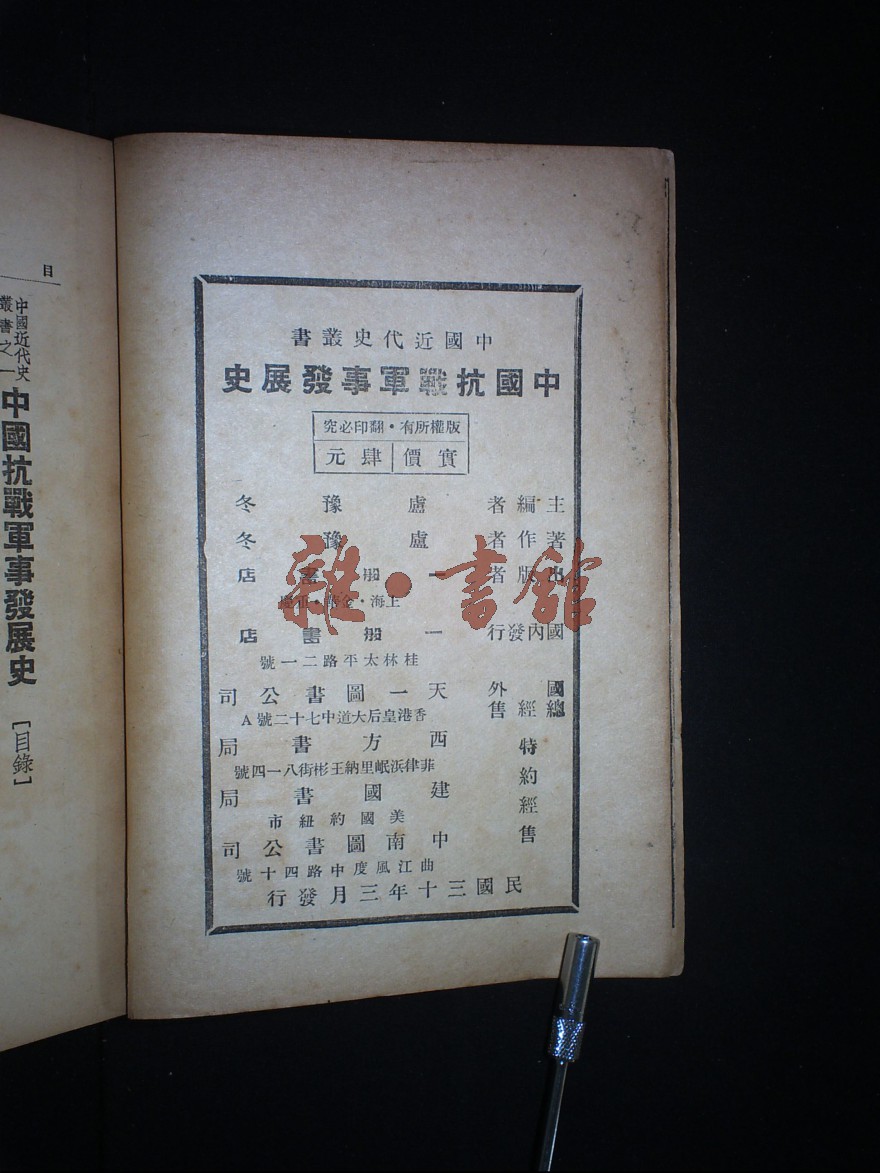 中國近代史叢書
中國抗戰軍事發展史
版權所有・翻印必究
實價 肆元
主編者 盧豫冬
著作者 盧豫冬
出版者 一般書店
上海・金華・重慶
國內發行 一般書店
桂林太平路二一號
國外總經售 天一圖書公司
香港皇后大道中七十二號A
特約經售 西方書局
菲律浜岷里納王彬街八一四號
建國書局
美國約紐市
中南圖書公司
曲江風度中路四十號
民國三十年三月發行
雜・書館
目
中國近代史叢書之一
中國抗戰軍事發展史
[目錄]